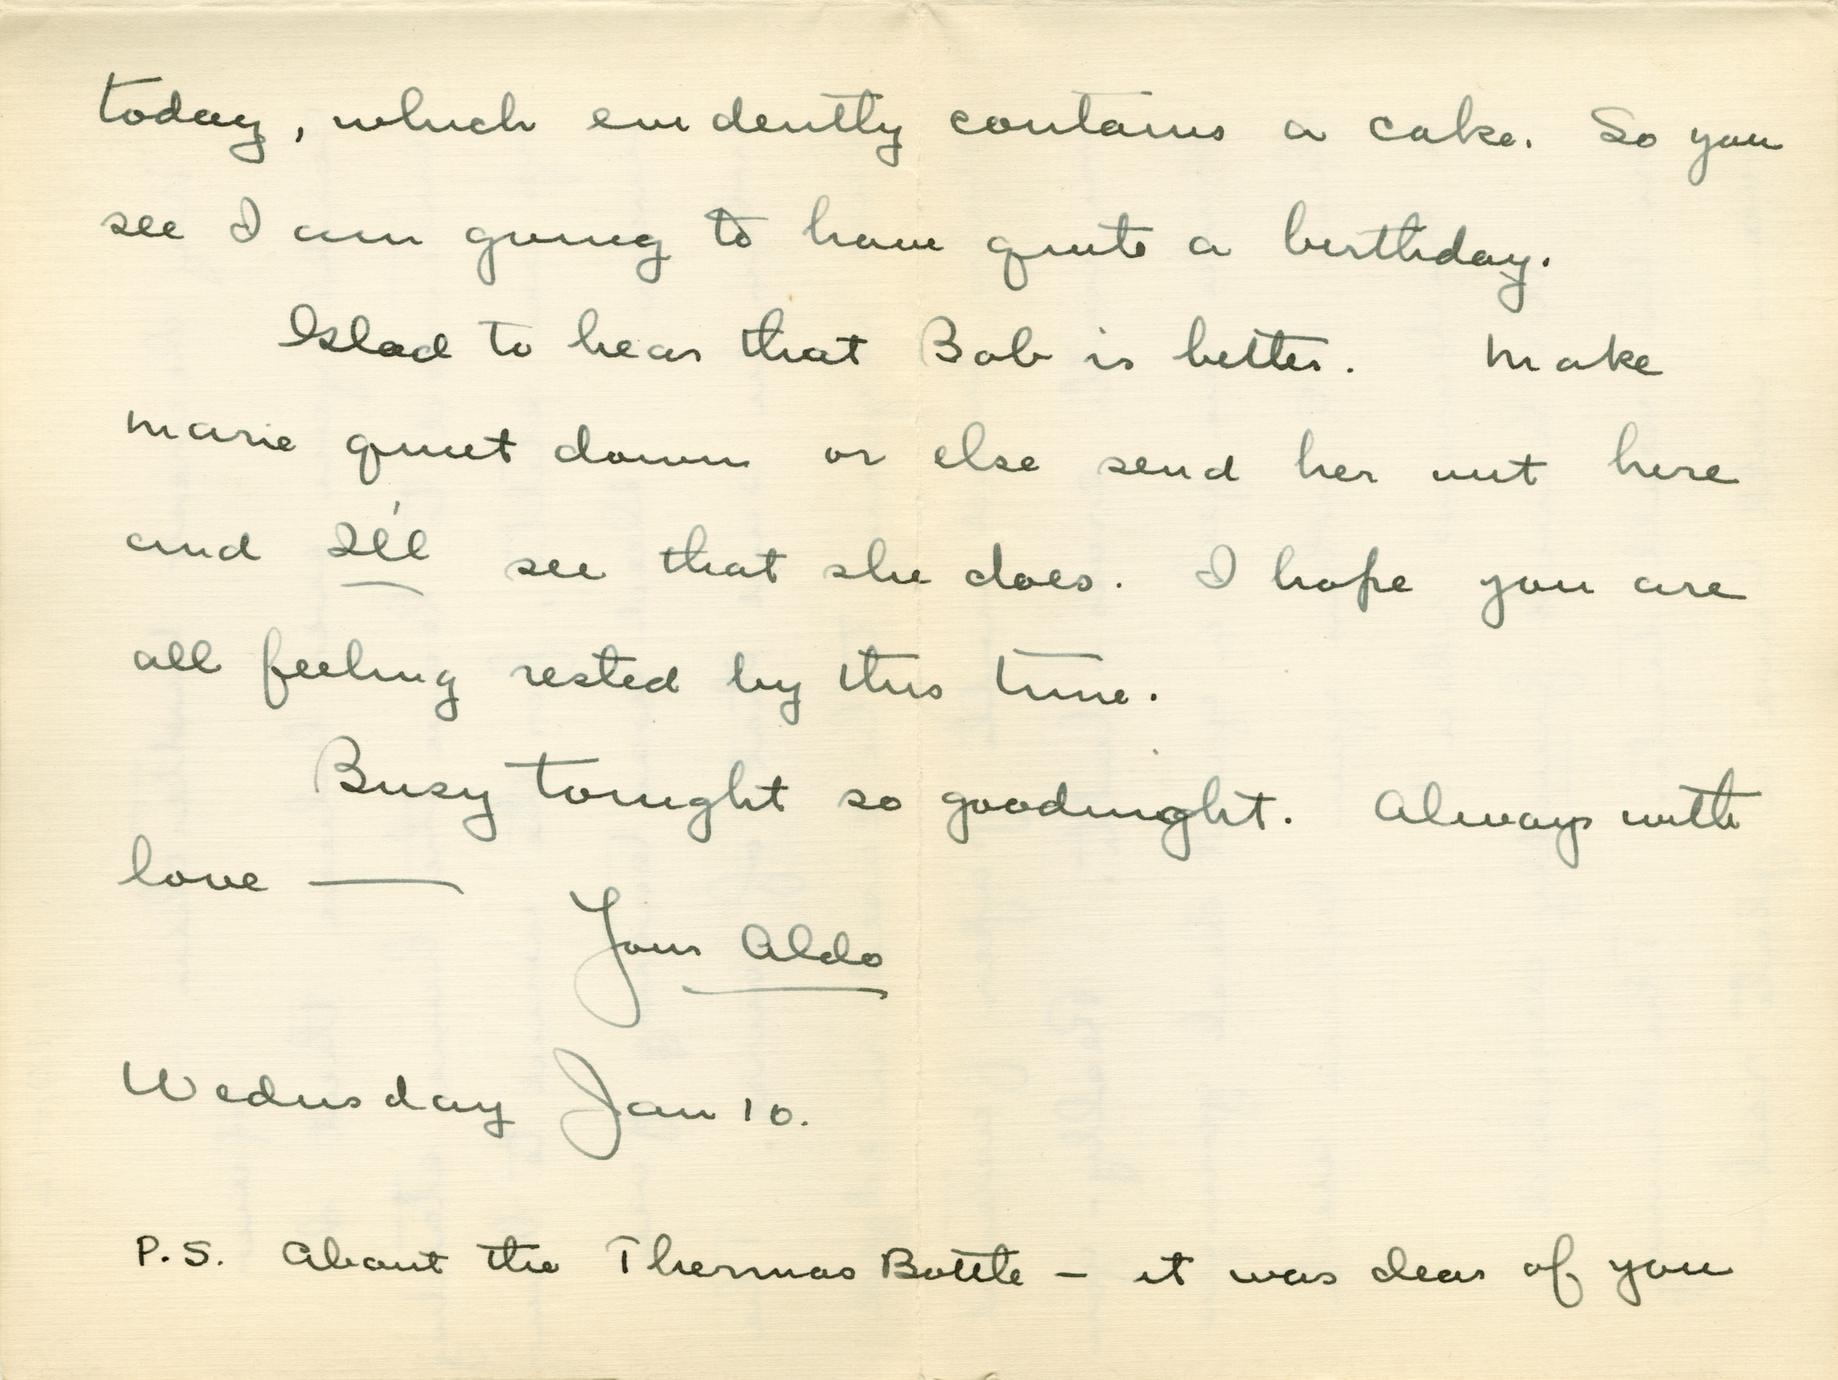 today, which evidently contains a cake. So you
see I am going to have quite a birthday.
Glad to hear that Bob is better. Make
Marie quiet down or else send her out here
and I'll see that she does. I hope you are
all feeling rested by this time.
Busy tonight so goodnight. Always with
love —
Your Aldo
Wednesday Jan 10.
P.S. About the Thermos Bottle – it was dear of you